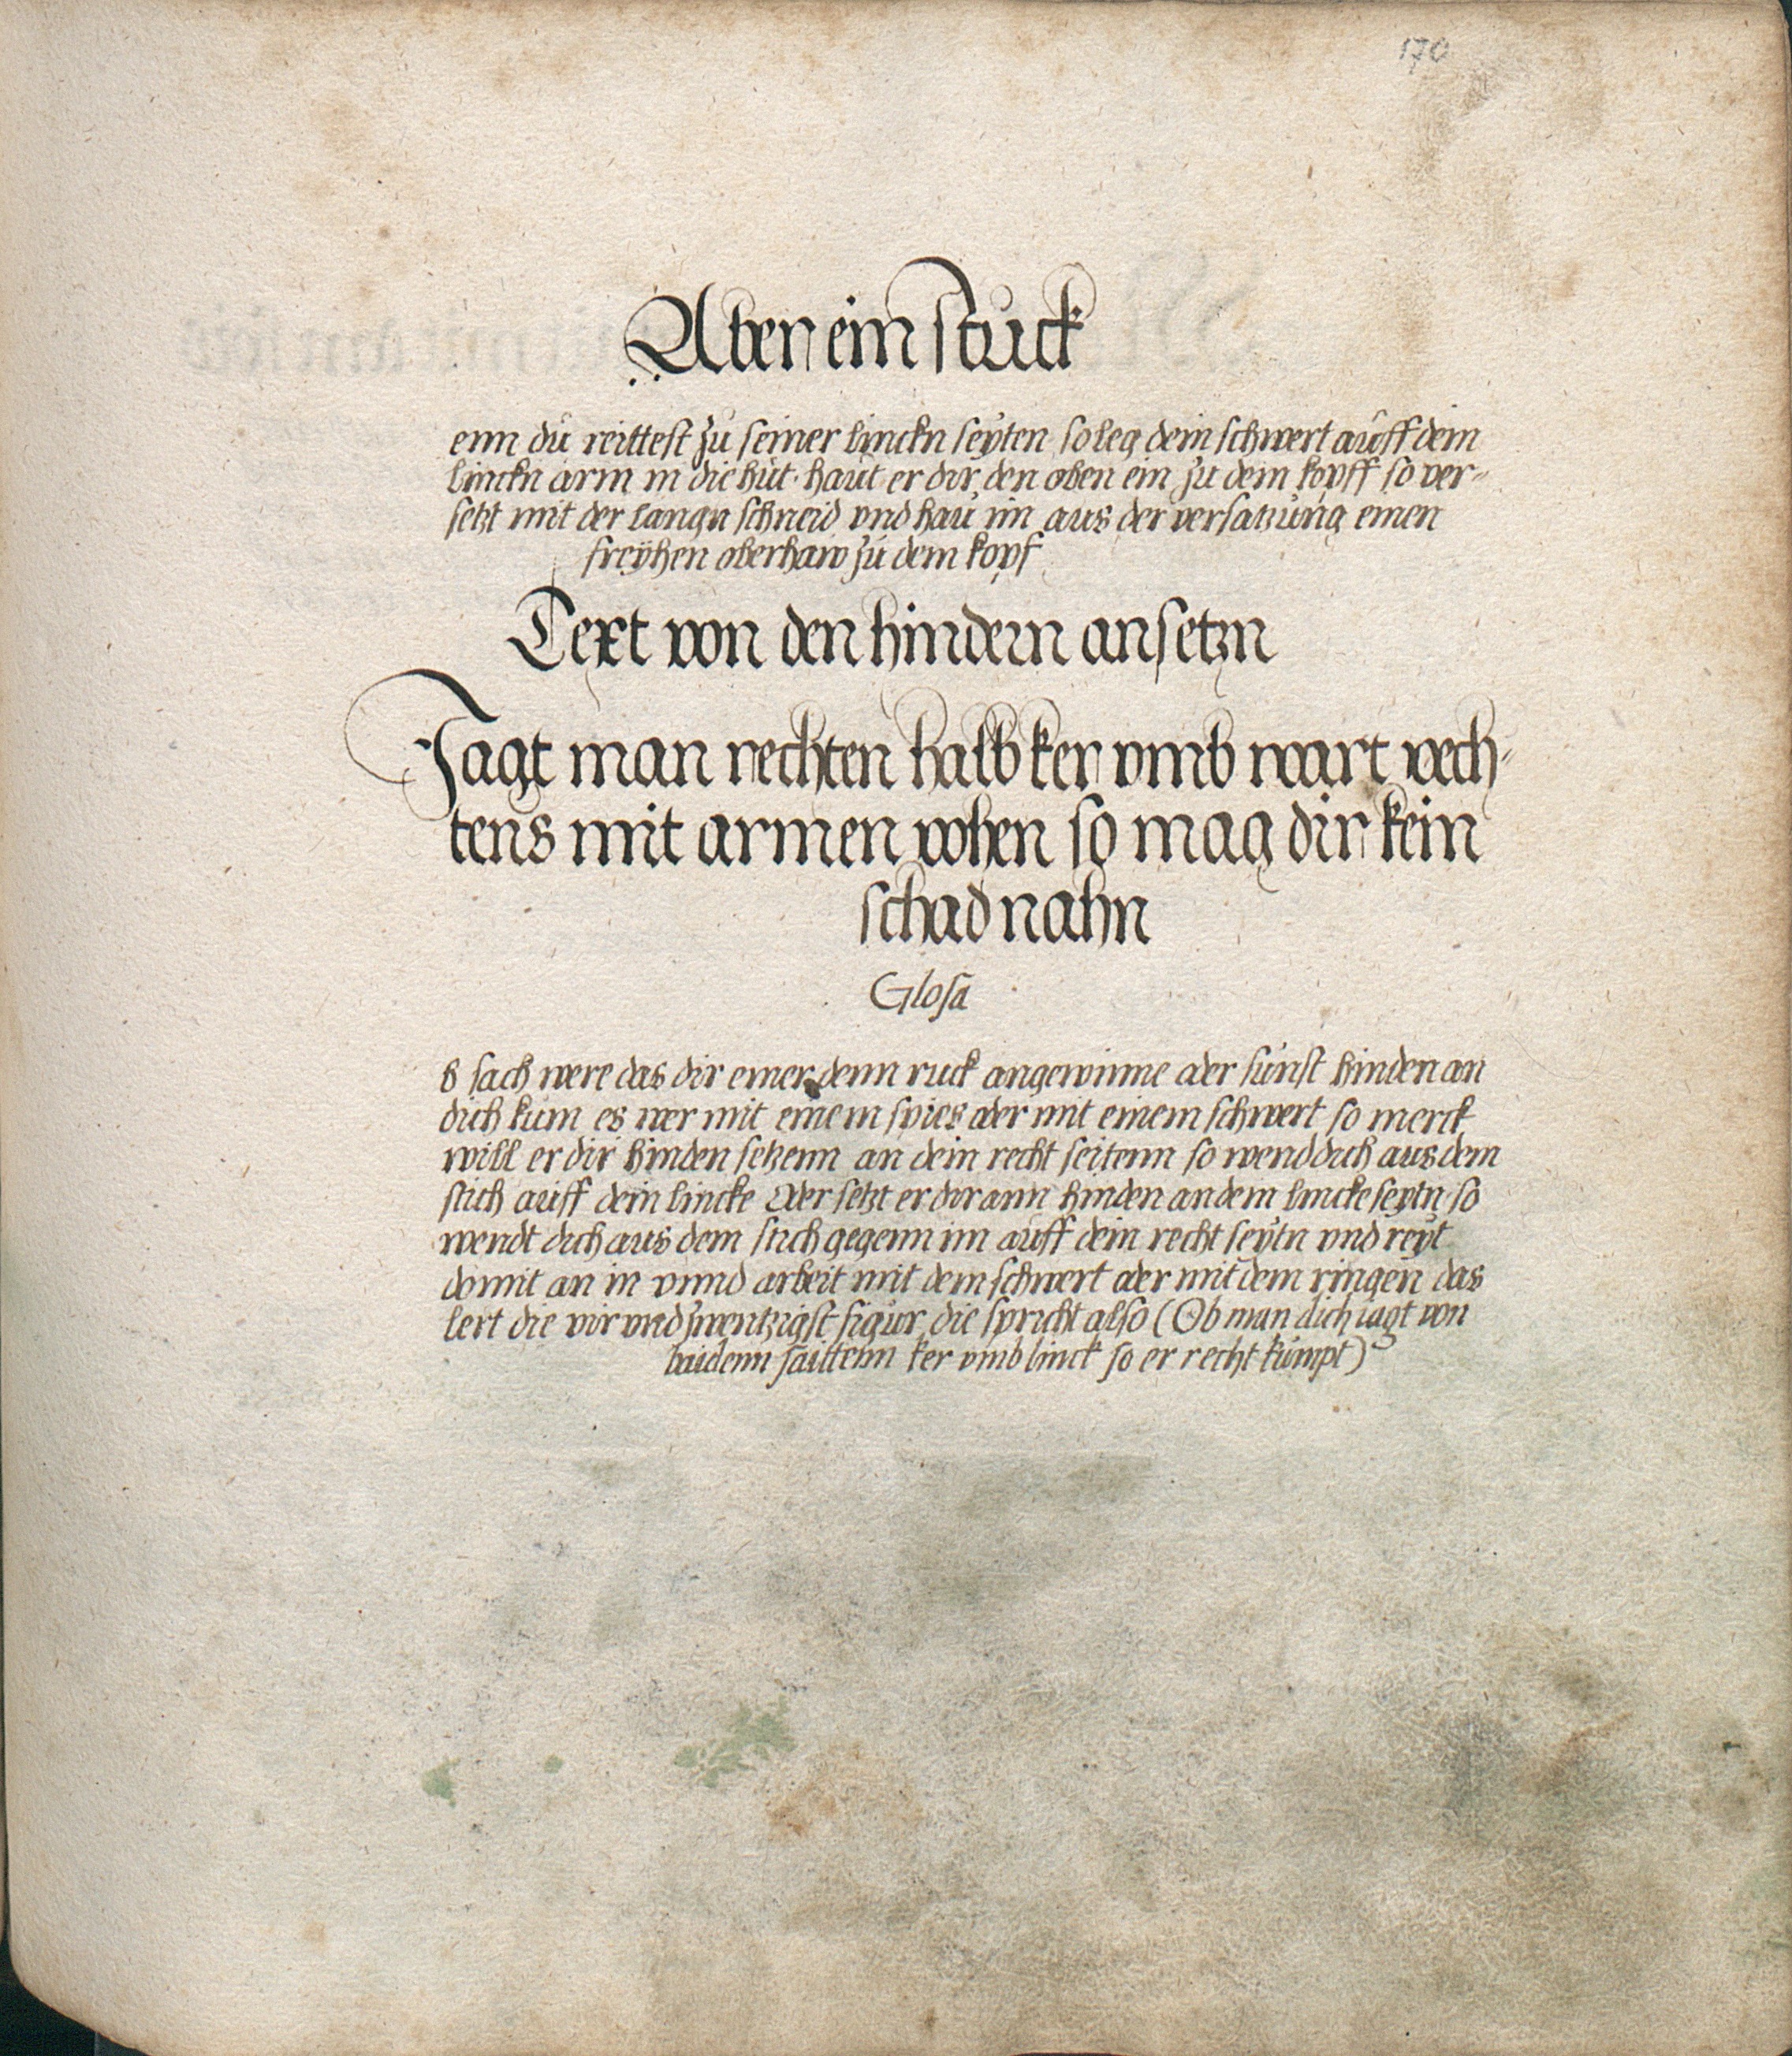 170
Aber ein stuck
enn du reittest zu seiner linckn seyten so leg dein schwert auff dem
linckn arm in die hut · haut er dir den oben ein zu dem kopff so ver-
setzt mit der langn schneid vnd hau im aus der versatzung einen
freyhen oberhaw zu dem kopf
Text von den hindern ansetzn
Jagt man rechten halb ker vmb wart vech-
tens mit armen vohen so mag dir kein
schad nahn
Glosa
b sach were das dir einer denn ruck angewinne ader sunst hinden an
dich kum es wer mit einem spies ader mit einem schwert so merck
will er dir hinden setzenn an dein recht seitenn so wend dich aus dem
stich auff dein lincke Ader setzt er dir ann hinden an dein lincke seytn so
wendt dich aus dem stich gegenn im auff dein recht seytn vnd reyt
domit an in vnnd arbeit mit dem schwert ader mit dem ringen das
lert die vir vnd zwentzigst figur die spricht also (Ob man dich iagt von
baidenn saittenn ker vmb linck so er recht kumpt)